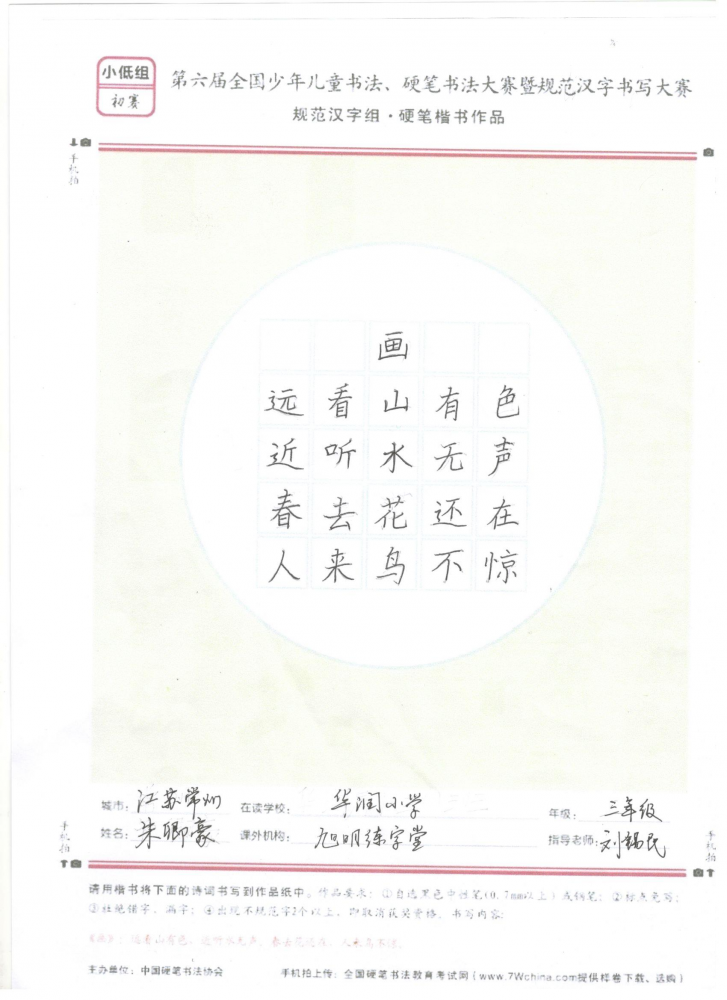 小低组
初赛
第六届全国少年儿童书法、硬笔书法大赛暨规范汉字书写大赛
规范汉字组·硬笔楷书作品
手机拍
画
远看山有色
近听水无声
春去花还在
人来鸟不惊
城市：江苏常州 在读学校：华润小学 年级：三年级
姓名：朱卿豪 课外机构：旭明练字堂 指导老师：刘锡民
手机拍
手机拍
请用楷书将下面的诗词书写到作品纸中。作品要求：①自选黑色中性笔(0.7mm以上)或钢笔；②标点免写；
③杜绝错字、漏字；④出现不规范字2个以上，即取消获奖资格。书写内容：
《画》：远看山有色，近听水无声。春去花还在，人来鸟不惊。
主办单位：中国硬笔书法协会 手机拍上传：全国硬笔书法教育考试网（www.7Wchina.com提供样卷下载、选购）